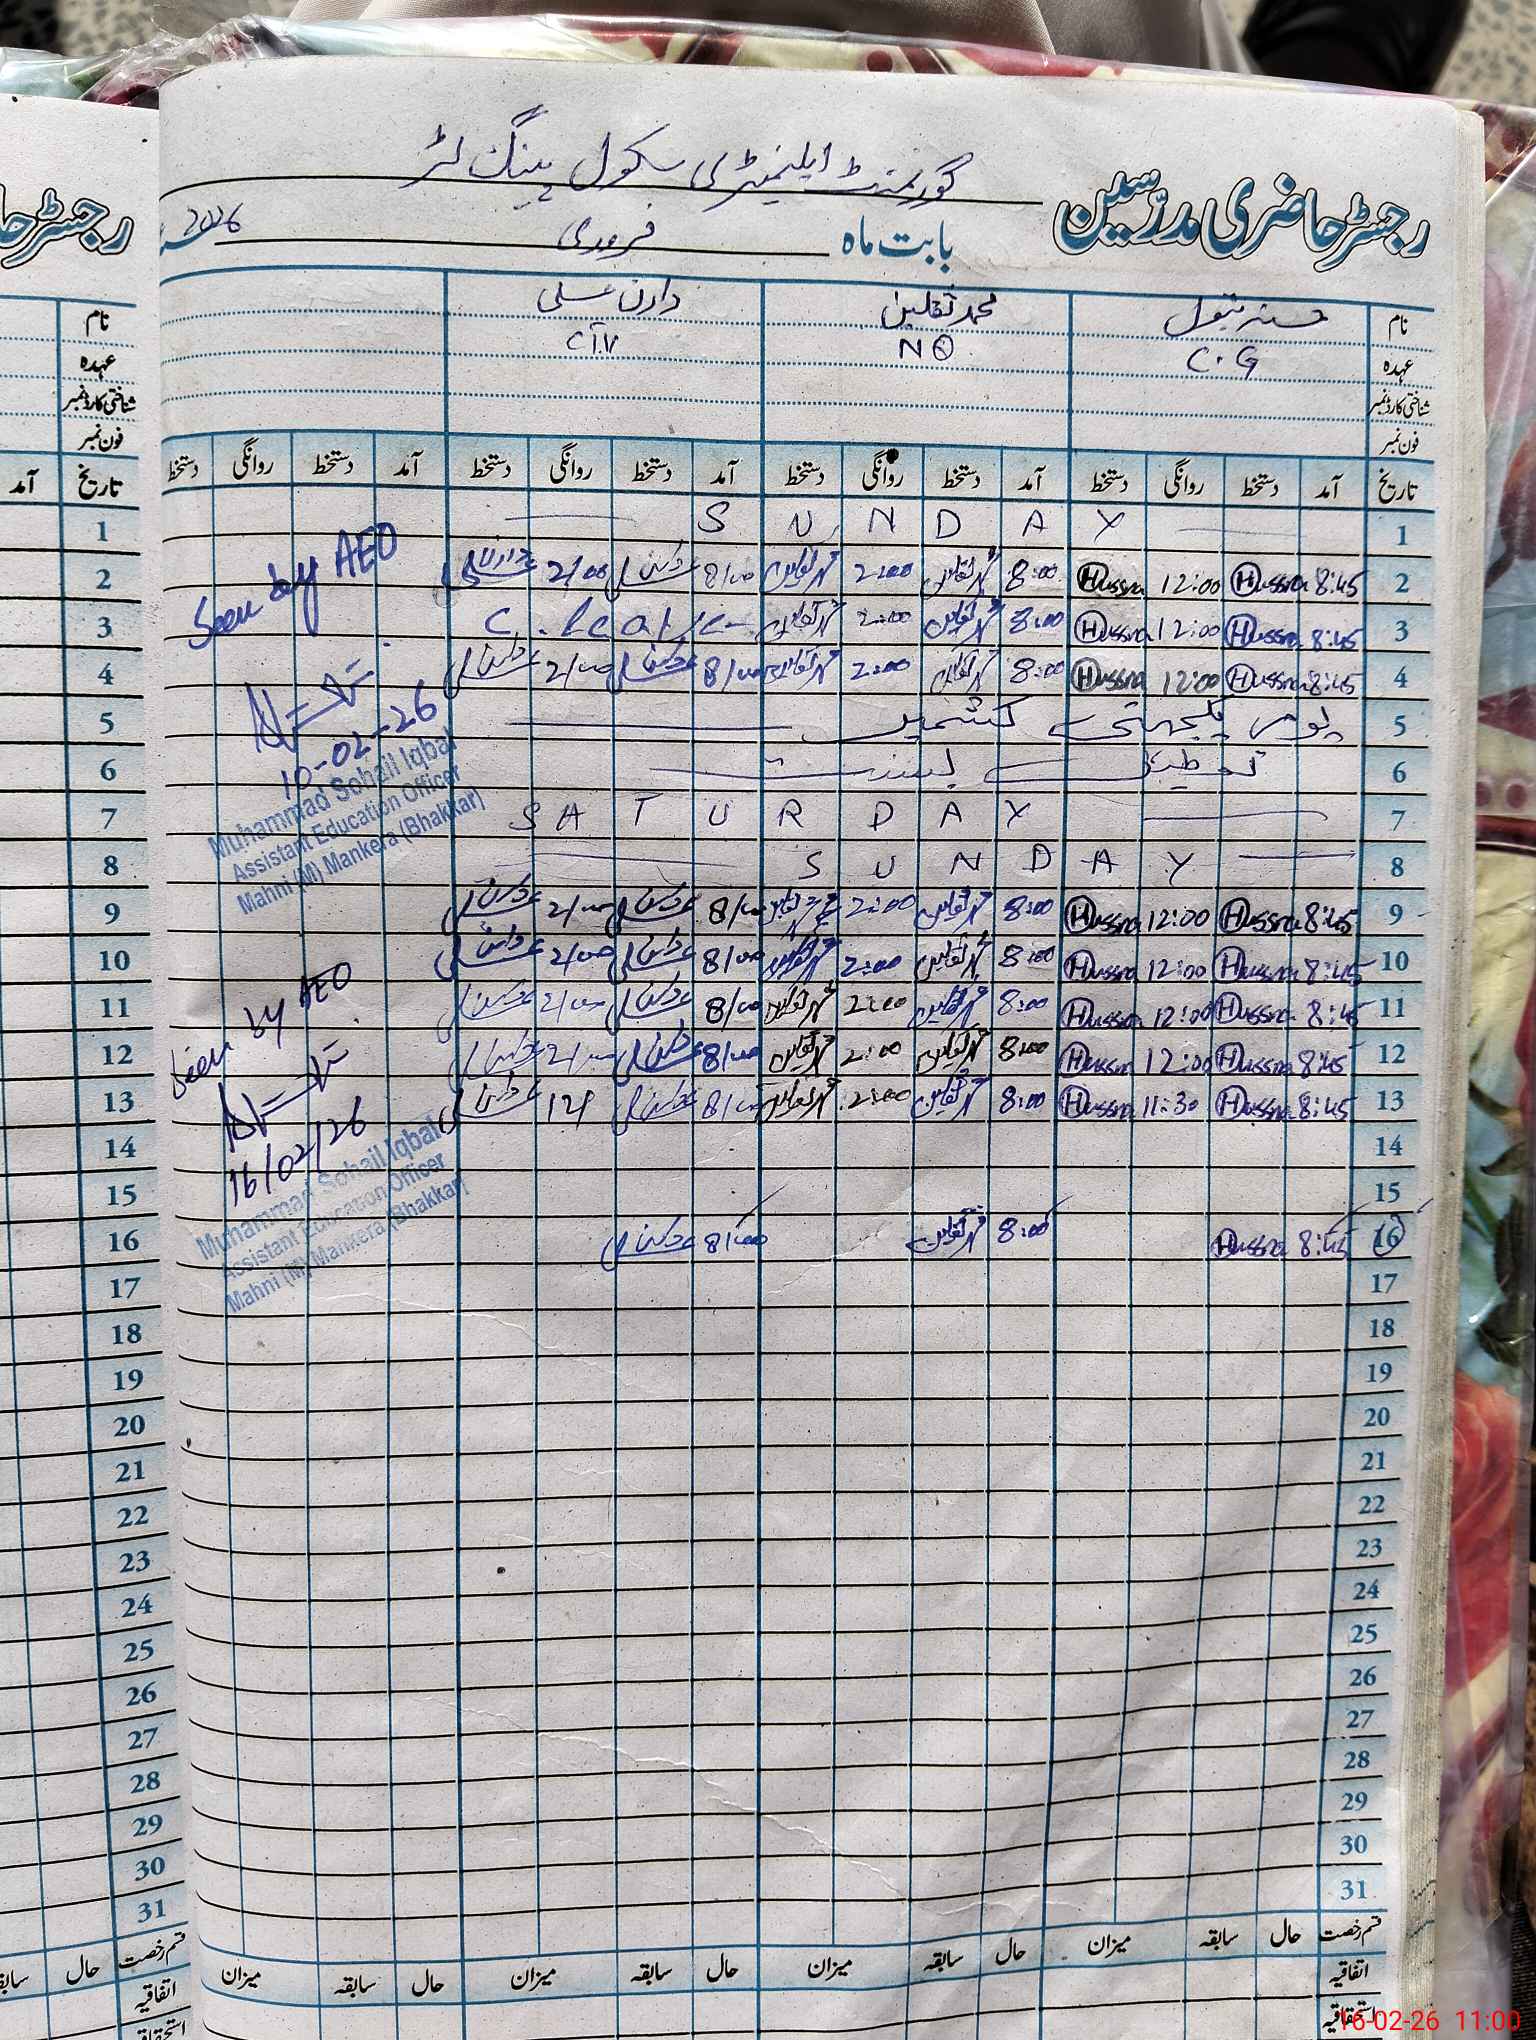 گورنمنٹ ایلیمنٹری سکول پینگ لٹر
رجسٹر حاضری مدرّسین
بابت ماہ فروری 2026
نام حسنہ بتول محمد ثقلین وارث علی
عہدہ C.G NQ
شناختی کارڈ نمبر
فون نمبر
تاریخ آمد دستخط روانگی دستخط آمد دستخط روانگی دستخط آمد دستخط روانگی دستخط آمد دستخط روانگی دستخط
1 S U N D A Y
2 8:45 Hussna 12:00 Hussna 8:00 محمد ثقلین 2:00 محمد ثقلین 8/00 2/00
3 8:45 Hussna 12:00 Hussna 8:00 محمد ثقلین 2:00 محمد ثقلین C. leave
4 8:45 Hussna 12:00 Hussna 8:00 محمد ثقلین 2:00 محمد ثقلین 8/00 2/00
5 یوم یکجہتی کشمیر
6 تعطیل بسنت
7 S A T U R D A Y
8 S U N D A Y
9 8:45 Hussna 12:00 Hussna 8:00 محمد ثقلین 2:00 محمد ثقلین 8/00 2/00
10 8:45 Hussna 12:00 Hussna 8:00 محمد ثقلین 2:00 محمد ثقلین 8/00 2/00
11 8:45 Hussna 12:00 Hussna 8:00 محمد ثقلین 2:00 محمد ثقلین 8/00 2/00
12 8:45 Hussna 12:00 Hussna 8:00 محمد ثقلین 2:00 محمد ثقلین 8/00 2/00
13 8:45 Hussna 11:30 Hussna 8:00 محمد ثقلین 2:00 محمد ثقلین 8/00
14
15
16 8:45 Hussna 8:00 محمد ثقلین 8/00
17
18
19
20
21
22
23
24
25
26
27
28
29
30
31
قسم رخصت حال سابقہ میزان حال سابقہ میزان حال سابقہ میزان حال سابقہ میزان
اتفاقیہ
استحقاقیہ
Seen by AEO
10-02-26
Muhammad Sohail Iqbal
Assistant Education Officer
Mahni (M) Mankera (Bhakkar)
Seen by AEO
16/02/26
Muhammad Sohail Iqbal
Assistant Education Officer
Mahni (M) Mankera (Bhakkar)
رجسٹر حا
نام
عہدہ
شناختی کارڈ نمبر
فون نمبر
تاریخ آمد
1
2
3
4
5
6
7
8
9
10
11
12
13
14
15
16
17
18
19
20
21
22
23
24
25
26
27
28
29
30
31
قسم رخصت حال
اتفاقیہ
16-02-26 11:00